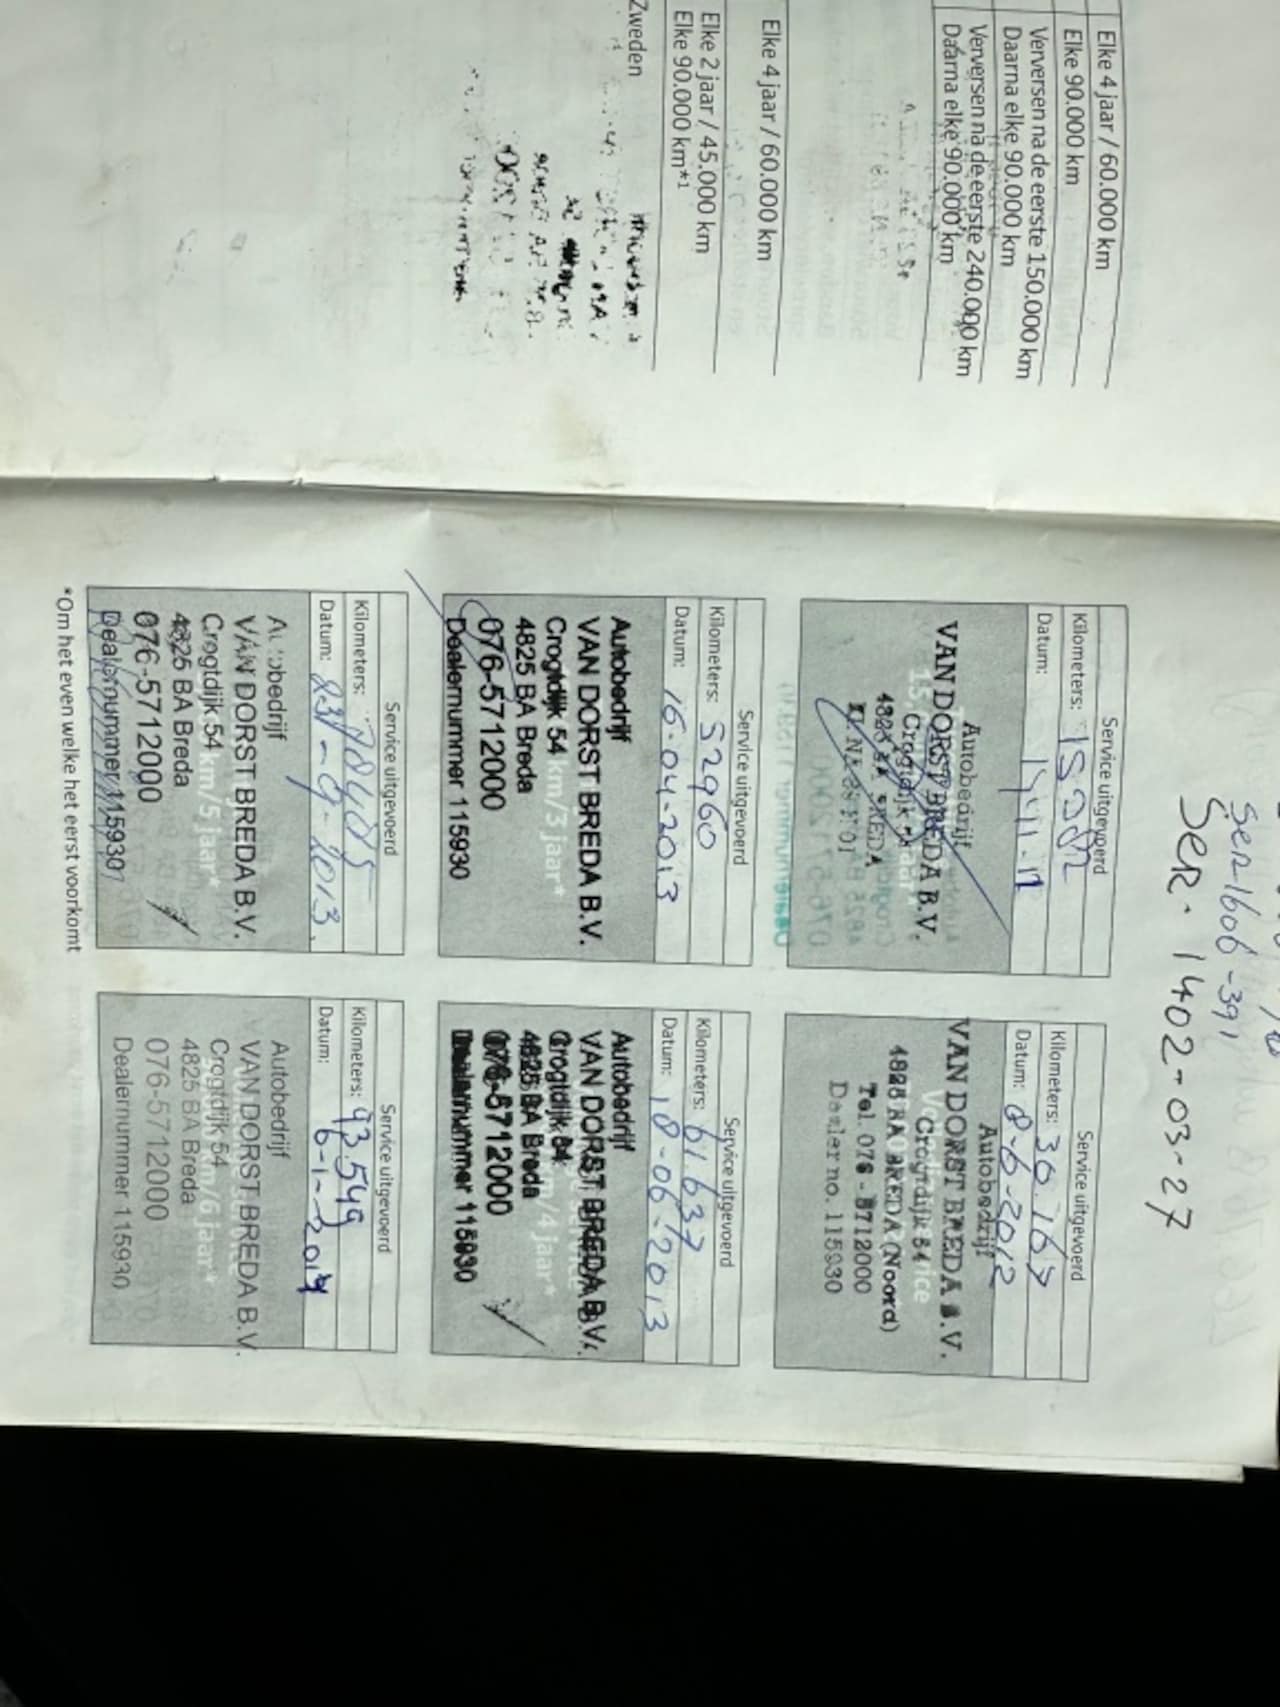 Elke 4 jaar / 60.000 km
Elke 90.000 km
Verversen na de eerste 150.000 km
Daarna elke 90.000 km
Verversen na de eerste 240.000 km
Daarna elke 90.000 km
Elke 4 jaar / 60.000 km
Elke 2 jaar / 45.000 km
Elke 90.000 km*1
Zweden
Ser 1606-391
SER. 1402-03-27
Service uitgevoerd
Kilometers:
Datum:
Autobedrijf
VAN DORST BREDA B.V.
Crogtdijk
BREDA
Service uitgevoerd
Kilometers: 30.167
Datum: 8-6-2012
Autobedrijf
VAN DORST BREDA B.V.
Crogtdijk 54
4825 BA BREDA (Noord)
Tel. 076 - 5712000
Dealer no. 115930
Service uitgevoerd
Kilometers: 52960
Datum: 16-04-2013
Autobedrijf
VAN DORST BREDA B.V.
Crogtdijk 54 km/3 jaar*
4825 BA Breda
076-5712000
Dealernummer 115930
Service uitgevoerd
Kilometers: 61637
Datum: 18-06-2013
Autobedrijf
VAN DORST BREDA B.V.
Crogtdijk 54 km/4 jaar*
4825 BA Breda
076-5712000
Dealernummer 115930
Service uitgevoerd
Kilometers:
Datum: 23-9-2013
Autobedrijf
VAN DORST BREDA B.V.
Crogtdijk 54 km/5 jaar*
4825 BA Breda
076-5712000
Dealernummer 115930
Service uitgevoerd
Kilometers: 93.549
Datum: 6-1-2014
Autobedrijf
VAN DORST BREDA B.V.
Crogtdijk 54 km/6 jaar*
4825 BA Breda
076-5712000
Dealernummer 115930
*Om het even welke het eerst voorkomt